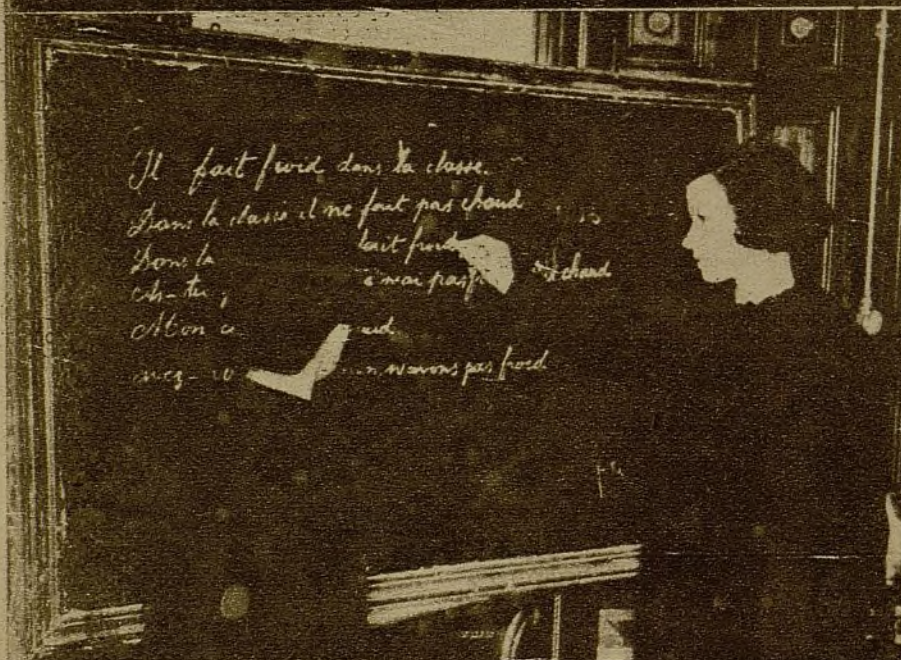 Il fait froid dans la classe.
Dans la classe il ne fait pas chaud
Dans la fait froid
As-tu, n'ai pas chaud
Mon
avez-vo n'avons pas froid